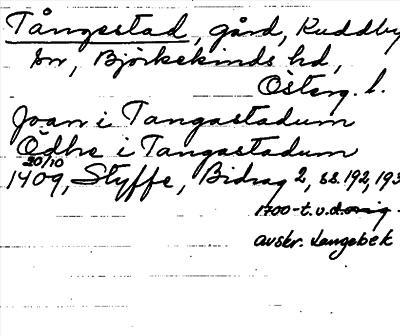 Tångestad, gård, Kuddby
sn, Björkekinds hd,
Österg. l.
Joan i Tangastadum
Ödhe i Tangastadum
20/10
1409, Styffe, Bidrag 2, ss. 192, 193
1700-t. v.d.
avskr. Langebek